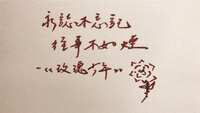 永誌不忘記
往事不如煙
-《玫瑰少年》